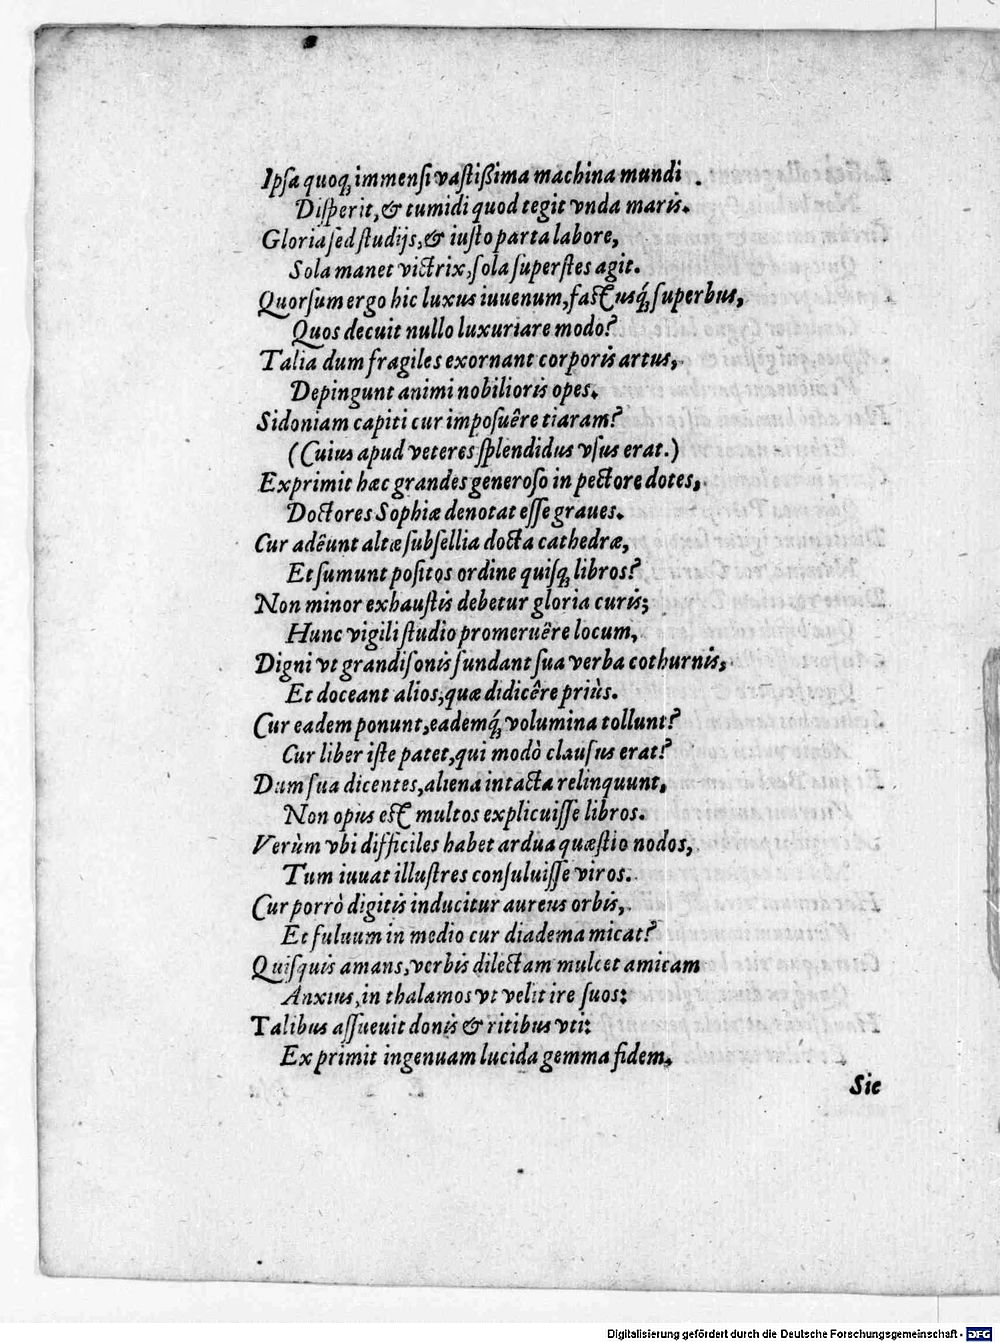 Ipſa quoq; immenſi vaſtißima machina mundi .
Diſperit, & tumidi quod tegit vnda maris.
Gloria ſed ſtudijs, & iuſto parta labore,
Sola manet victrix, ſola ſuperſtes agit.
Quorſum ergo hic luxus iuuenum, faſtusq́; ſuperbus,
Quos decuit nullo luxuriare modo?
Talia dum fragiles exornant corporis artus,
Depingunt animi nobilioris opes.
Sidoniam capiti cur impoſuêre tiaram?
(Cuius apud veteres ſplendidus vſus erat.)
Exprimit hæc grandes generoſo in pectore dotes,
Doctores Sophiæ denotat eſſe graues.
Cur adêunt altæ ſubſellia docta cathedræ,
Et ſumunt poſitos ordine quiſq; libros?
Non minor exhauſtis debetur gloria curis;
Hunc vigili ſtudio promeruêre locum,
Digni vt grandiſonis fundant ſua verba cothurnis,
Et doceant alios, quæ didicêre priùs.
Cur eadem ponunt, eademq́; volumina tollunt?
Cur liber iſte patet, qui modò clauſus erat?
Dum ſua dicentes, aliena intacta relinquunt,
Non opus eſt multos explicuiſſe libros.
Verùm vbi difficiles habet ardua quæſtio nodos,
Tum iuuat illuſtres conſuluiſſe viros.
Cur porrò digitis inducitur aureus orbis,
Et fuluum in medio cur diadema micat?
Quiſquis amans, verbis dilectam mulcet amicam
Anxius, in thalamos vt velit ire ſuos:
Talibus aſſueuit donis & ritibus vti:
Exprimit ingenuam lucida gemma fidem.
Sic
Digitalisierung gefördert durch die Deutsche Forschungsgemeinschaft - DFG